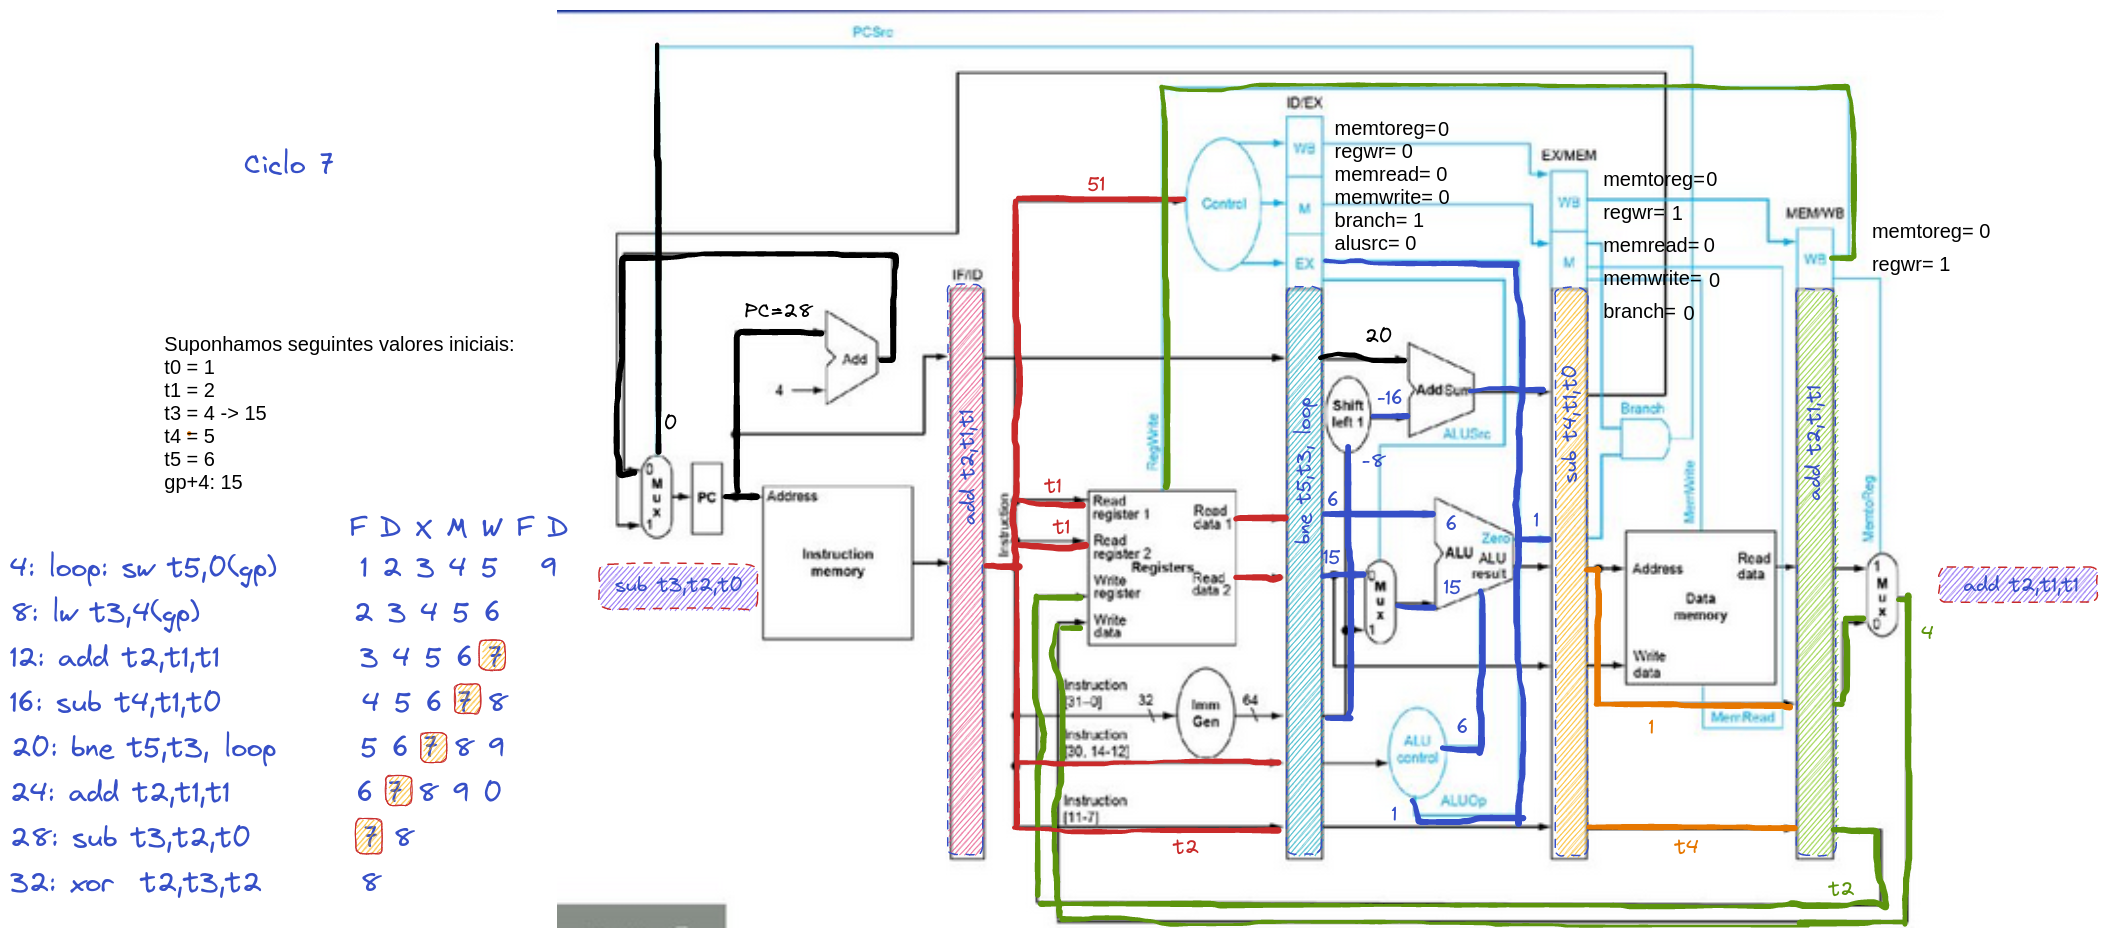 Ciclo 7
Suponhamos seguintes valores iniciais:
t0 = 1
t1 = 2
t3 = 4 -> 15
t4 = 5
t5 = 6
gp+4: 15
F D X M W F D
4: loop: sw t5,0(gp) 1 2 3 4 5 9
8: lw t3,4(gp) 2 3 4 5 6
12: add t2,t1,t1 3 4 5 6 7
16: sub t4,t1,t0 4 5 6 7 8
20: bne t5,t3, loop 5 6 7 8 9
24: add t2,t1,t1 6 7 8 9 0
28: sub t3,t2,t0 7 8
32: xor t2,t3,t2 8
PCSrc
0
0
M
u
x
1
PC
PC=28
Add
4
Address
Instruction
memory
sub t3,t2,t0
IF/ID
add t2,t1,t1
Instruction
51
Control
RegWrite
t1
t1
Read
register 1
Read
register 2
Write
register
Write
data
Registers
Read
data 1
Read
data 2
Instruction
[31–0]
32
Imm
Gen
64
Instruction
[30, 14-12]
Instruction
[11-7]
t2
ID/EX
WB
M
EX
bne t5,t3, loop
memtoreg=0
regwr= 0
memread= 0
memwrite= 0
branch= 1
alusrc= 0
20
Shift
left 1
-16
-8
AddSum
ALUSrc
6
15
0
M
u
x
1
6
15
ALU
Zero
ALU
result
1
6
ALU
control
1
ALUOp
EX/MEM
WB
M
sub t4,t1,t0
memtoreg=0
regwr= 1
memread= 0
memwrite= 0
branch= 0
Branch
MemWrite
Address
Read
data
Data
memory
Write
data
MemRead
1
t4
MEM/WB
WB
add t2,t1,t1
memtoreg= 0
regwr= 1
MemtoReg
1
M
u
x
0
4
t2
add t2,t1,t1